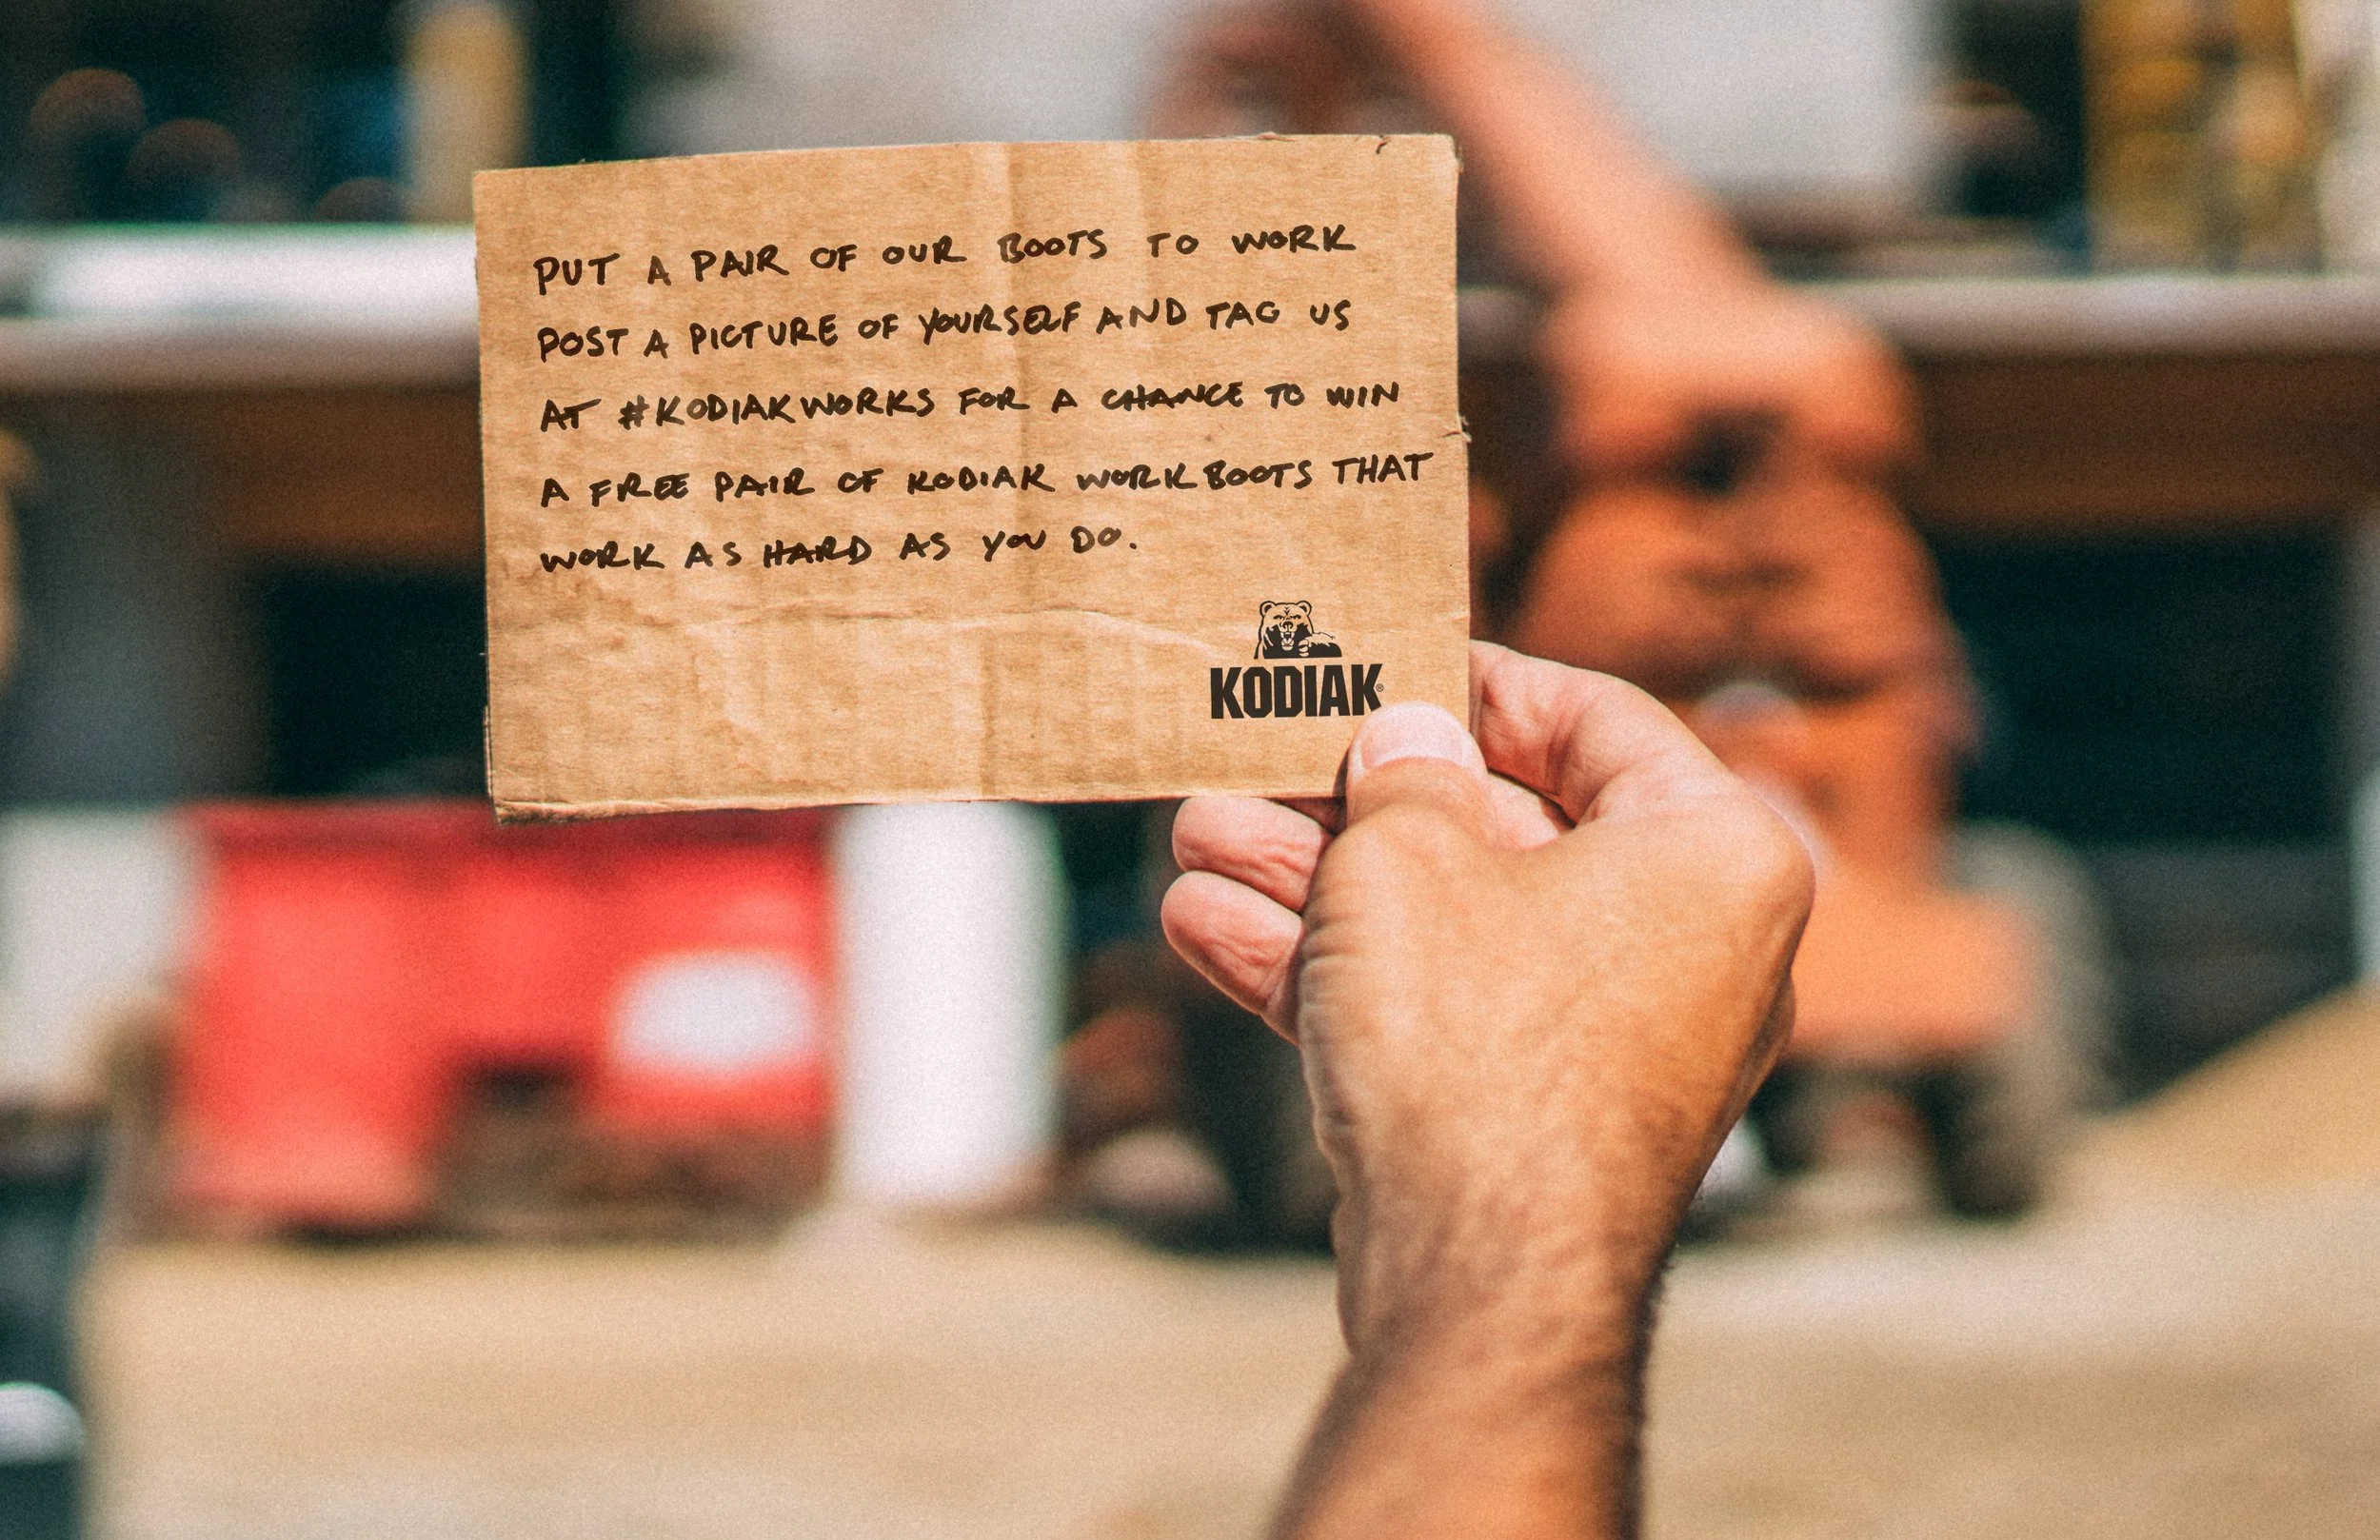 PUT A PAIR OF OUR BOOTS TO WORK
POST A PICTURE OF YOURSELF AND TAG US
AT #KODIAKWORKS FOR A CHANCE TO WIN
A FREE PAIR OF KODIAK WORKBOOTS THAT
WORK AS HARD AS YOU DO.
KODIAK®